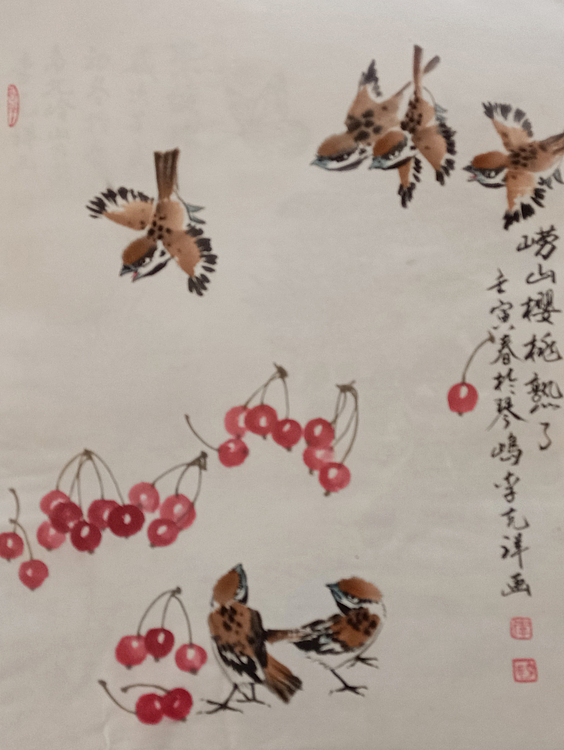 崂山樱桃熟了
壬寅春於琴嶋李克祥画